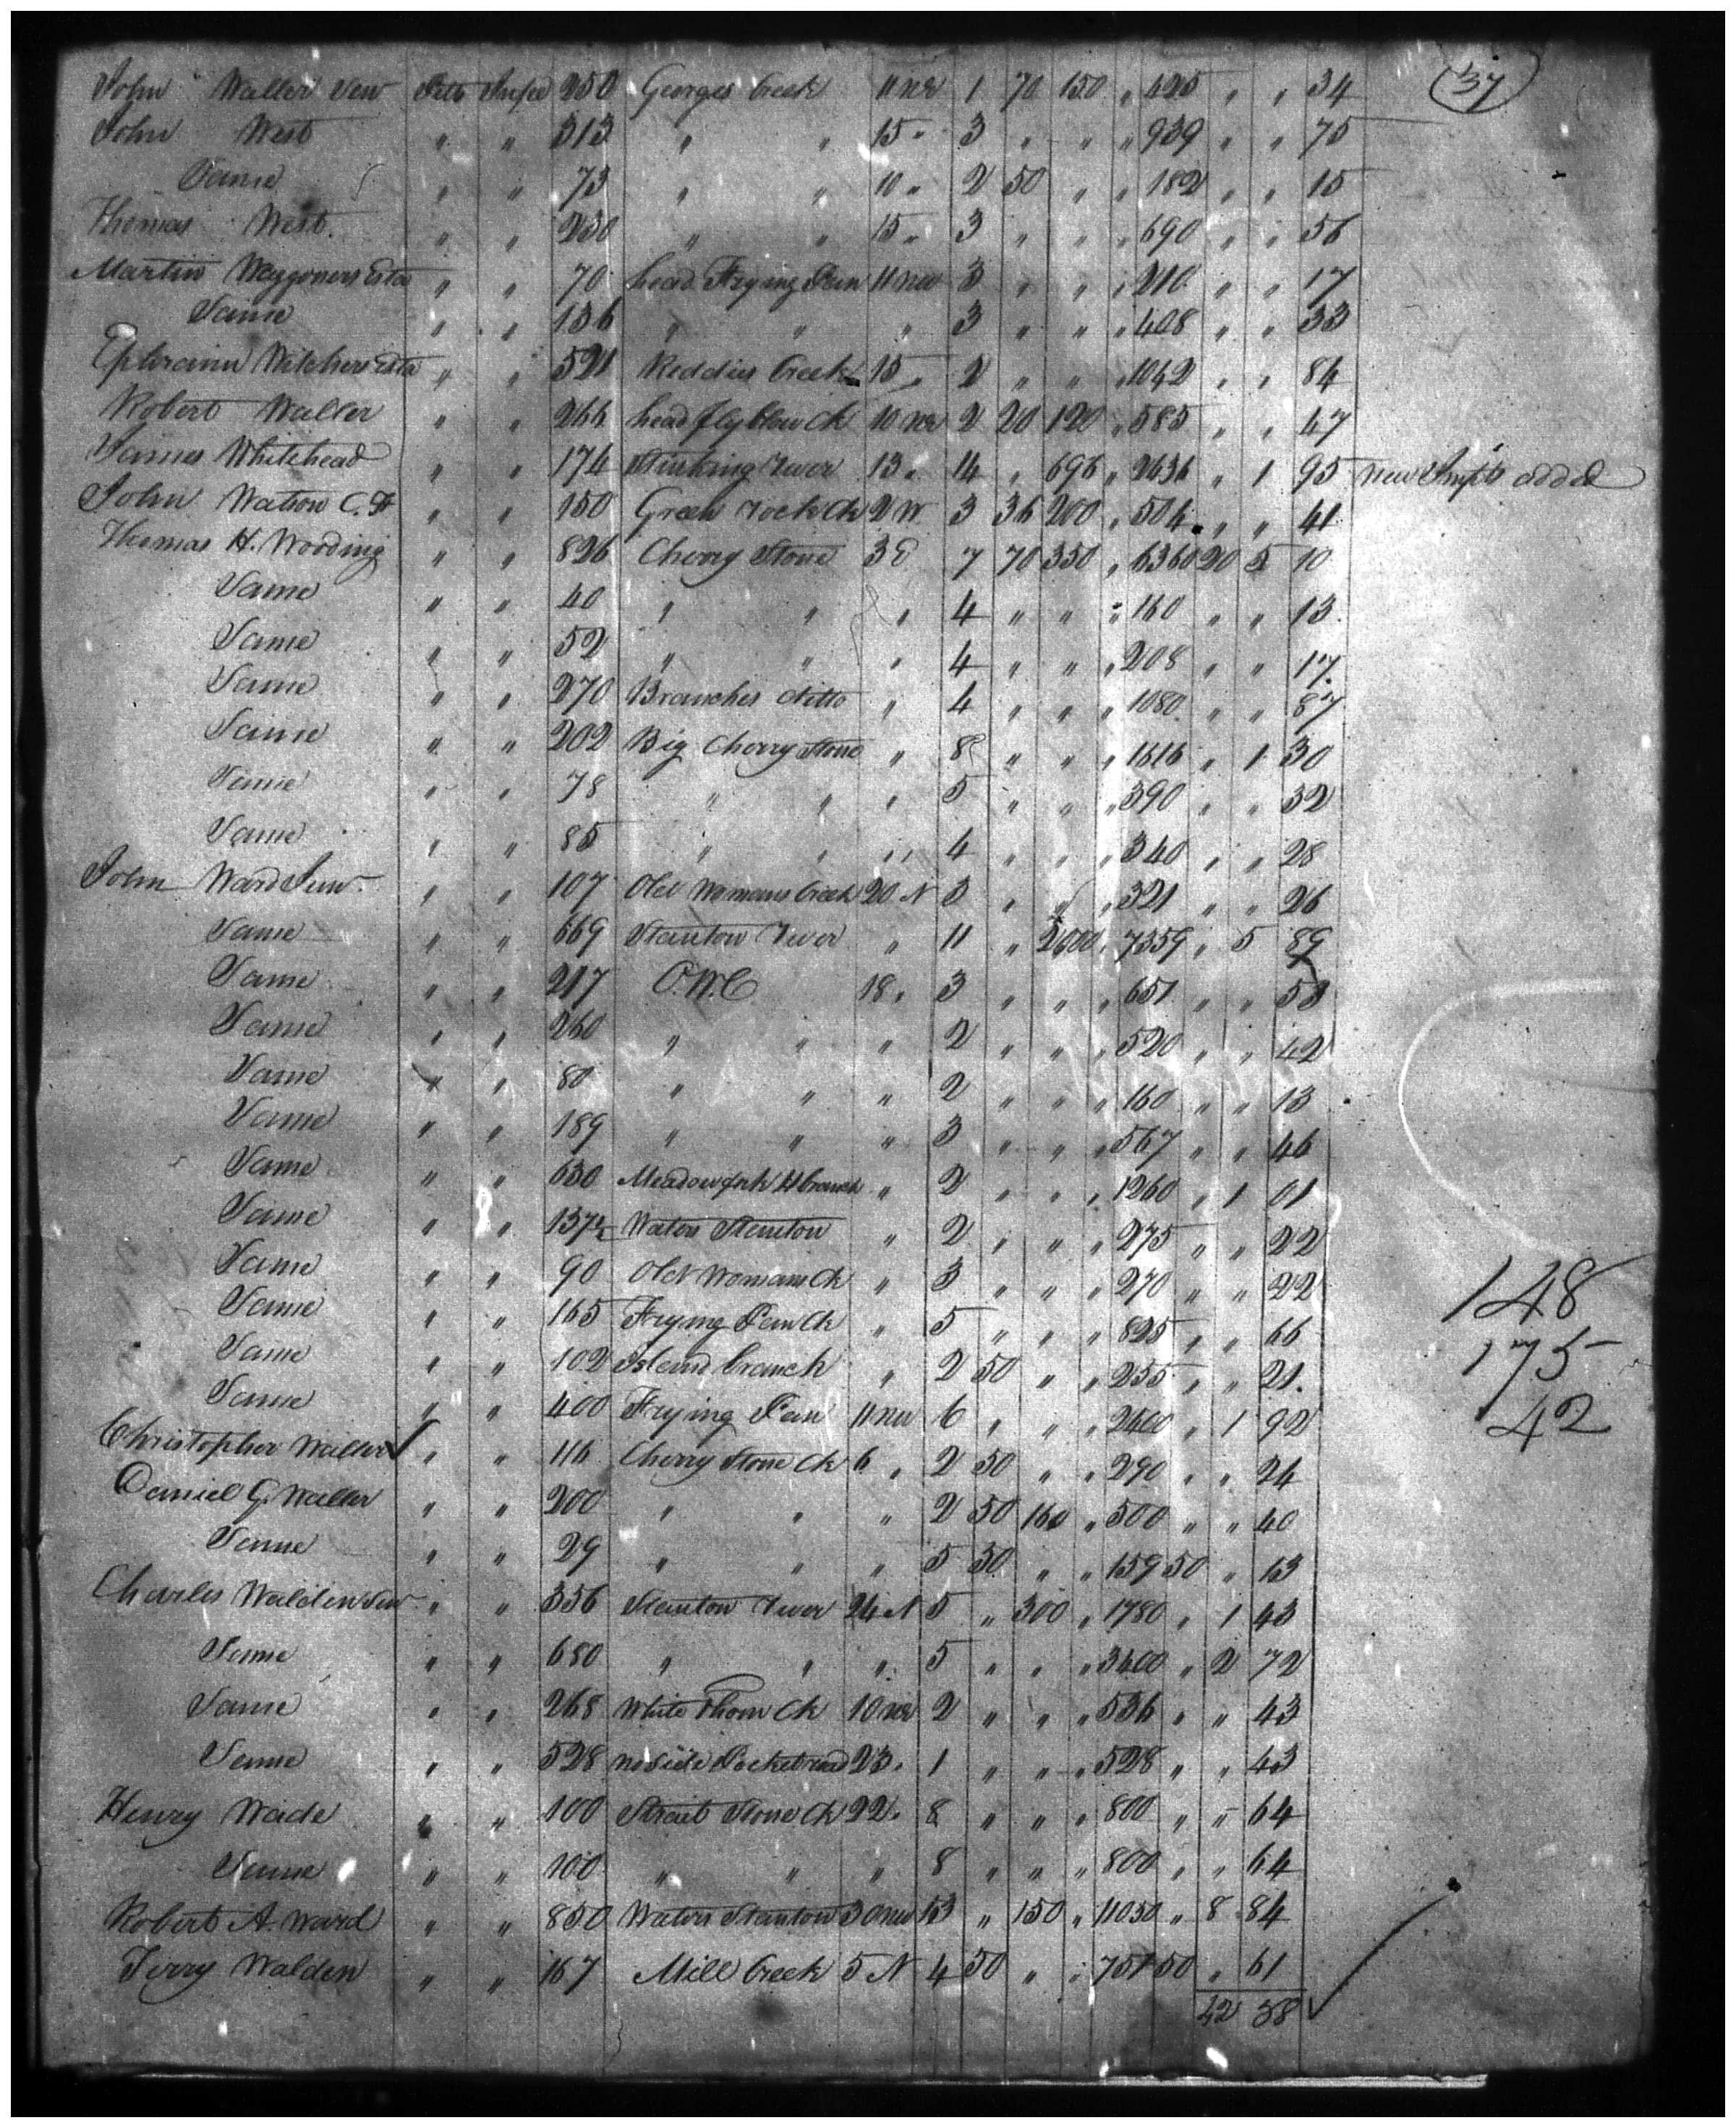 John Waller Sen Pitts Infee 250 Georges Creek 11 NE 1 70 150 " 425 " " 34 (37)
John West " " 313 " " 15 " 3 " " " 939 " " 75
Same " " 73 " " 10 " 2 50 " " 182 " " 15
Thomas West " " 230 " " 15 " 3 " " " 690 " " 56
Martin Waggoners Esta " " 70 head Frying Pan 11 NW 3 " " " 210 " " 17
Same " " 136 " " " 3 " " " 408 " " 33
Ephraim Witchers Esta " " 521 Reddies Creek 15 " 2 " " " 1042 " " 84
Robert Waller " " 266 head fly blow Ck 10 NE 2 20 120 " 585 " " 47
James Whitehead " " 174 Stinking River 13 " 14 " 696 " 2436 " 1 95 new Impts added
John Watson C. H " " 150 Green rock Ck 2 W 3 36 200 " 504 " " 41
Thomas H. Wooding " " 826 Cherry Stone 3 E 7 70 350 " 6360 20 5 10
Same " " 40 " " " 4 " " " 160 " " 13
Same " " 52 " " " 4 " " " 208 " " 17
Same " " 270 Branches ditto " 4 " " " 1080 " " 87
Same " " 202 Big Cherry Stone " 8 " " " 1616 " 1 30
Same " " 78 " " " 5 " " " 390 " " 32
Same " " 85 " " " 4 " " " 340 " " 28
John Ward Sen " " 107 Old Womans Creek 20 N 3 " " " 321 " " 26
Same " " 669 Stanton River " 11 " 2600 " 7359 " 5 89
Same " " 217 O.W.C 18 " 3 " " " 651 " " 53
Same " " 260 " " " 2 " " " 520 " " 42
Same " " 80 " " " 2 " " " 160 " " 13
Same " " 189 " " " 3 " " " 567 " " 46
Same " " 630 Meadow fork H branch " 2 " " " 1260 " 1 01
Same " " 137½ Waters Stanton " 2 " " " 275 " " 22
Same " " 90 Old Womans Ck " 3 " " " 270 " " 22
Same " " 165 Frying Pan Ck " 5 " " " 825 " " 66
Same " " 102 Island branch " 2 50 " " 255 " " 21
Same " " 400 Frying Pan 11 NW 6 " " " 2400 " 1 92
Christopher Waller " " 116 Cherry Stone Ck 6 " 2 50 " " 290 " " 24
Daniel G. Waller " " 200 " " " 2 50 160 " 500 " " 40
Same " " 29 " " " 5 50 " " 159 50 " 13
Charles Walden Sen " " 356 Stanton River 24 N 5 " 300 " 1780 " 1 43
Same " " 680 " " " 5 " " " 3400 " 2 72
Same " " 268 White Thorn Ck 10 NE 2 " " " 536 " " 43
Same " " 528 No Side Pocket road 23 " 1 " " " 528 " " 43
Henry Wade " " 100 Strait Stone Ck 22 " 8 " " " 800 " " 64
Same " " 100 " " " 8 " " " 800 " " 64
Robert A. Ward " " 850 Waters Stanton 30 NW 13 " 150 " 11050 " 8 84
Jerry Walden " " 167 Mill Creek 5 N 4 50 " " 751 50 " 61
42 38
148
175
42